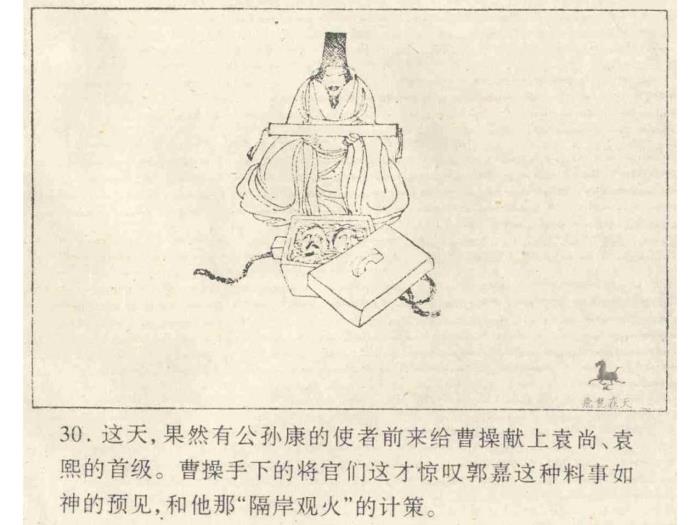 30. 这天,果然有公孙康的使者前来给曹操献上袁尚、袁
熙的首级。曹操手下的将官们这才惊叹郭嘉这种料事如
神的预见,和他那“隔岸观火”的计策。